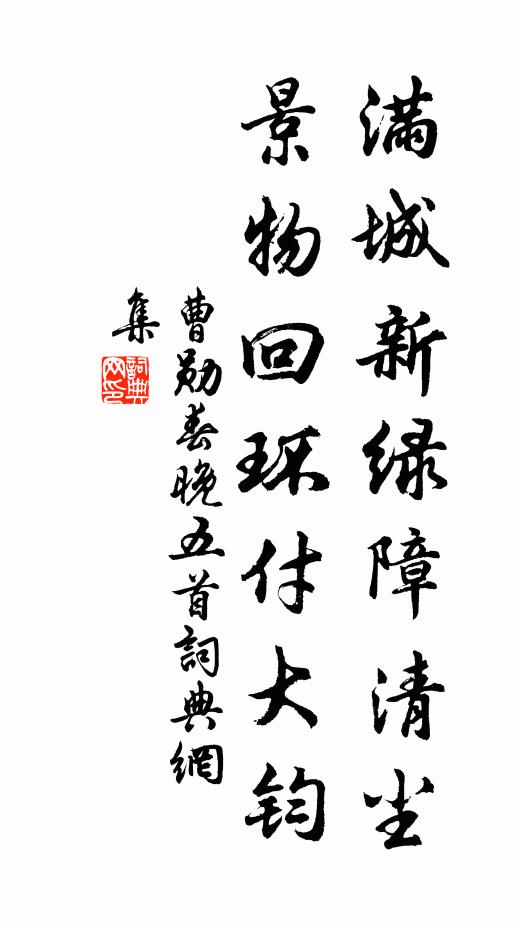 满城新绿障清尘
景物回环付大钧
曹勋春晚五首詞典網
集
詞典网印